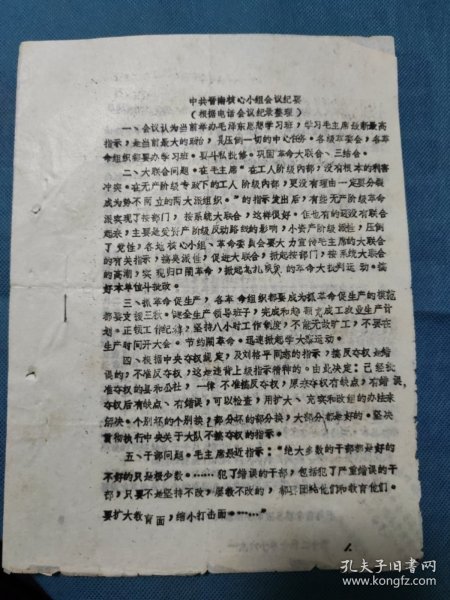 中共晋南核心小组会议纪要
（根据电话会议纪录整理）
一、会议认为当前举办毛泽东思想学习班，学习毛主席最新最高
指示，是当前最大的政治，是压倒一切的中心任务。各级革委会，各革
命组织都要办学习班。要斗私批修。巩固革命大联合、三结合。
二、大联合问题。在毛主席“在工人阶级内部，没有根本的利害
冲突。在无产阶级专政下的工人阶级内部，更没有理由一定要分裂
成为势不两立的两大派组织。”的指示发出后，有些无产阶级革命
派实现了按部门，按系统大联合，这样很好。但也有的还没有联合
起来，主要是受资产阶级反动路线的影响，小资产阶级派性，压倒
了党性，各地核心小组、革命委员会要大力宣传毛主席的大联合
的有关指示，搞臭派性，促进大联合，掀起按部门，按系统大联合
的高潮，实现归口闹革命，掀起轰轰烈烈的革命大批判运动。搞
好本单位斗批改。
三、抓革命促生产，各革命组织都要成为抓革命促生产的模范
都要支援三秋。健全生产领导班子，完成和超额完成工农业生产计
划。正视工作纪律，坚持八小时工作制度，不能无故旷工，不要在
生产时间开大会。节约闹革命。迅速掀起学大寨运动。
四、根据中央夺权规定，及刘格平同志的指示，搞反夺权是错
误的，不准反夺权，这是违背上级指示精神的。由此决定：已经批
准夺权的县和公社，一律不准搞反夺权，原来夺权有缺点，有错误，
夺权后有缺点、有错误，可以检查，用扩大、充实和改组的办法来
解决。个别坏的个别换，部分坏的部分换，大部分都是好的。坚决
贯彻执行中央关于大队不能夺权的指示。
五、干部问题。毛主席最近指示：“绝大多数的干部都是好的
不好的只是极少数。……犯了错误的干部，包括犯了严重错误的干
部，只要不是坚持不改，屡教不改的，都要团结他们和教育他们。
要扩大教育面，缩小打击面。……”
1.
孔夫子旧书网
www.kongfz.com